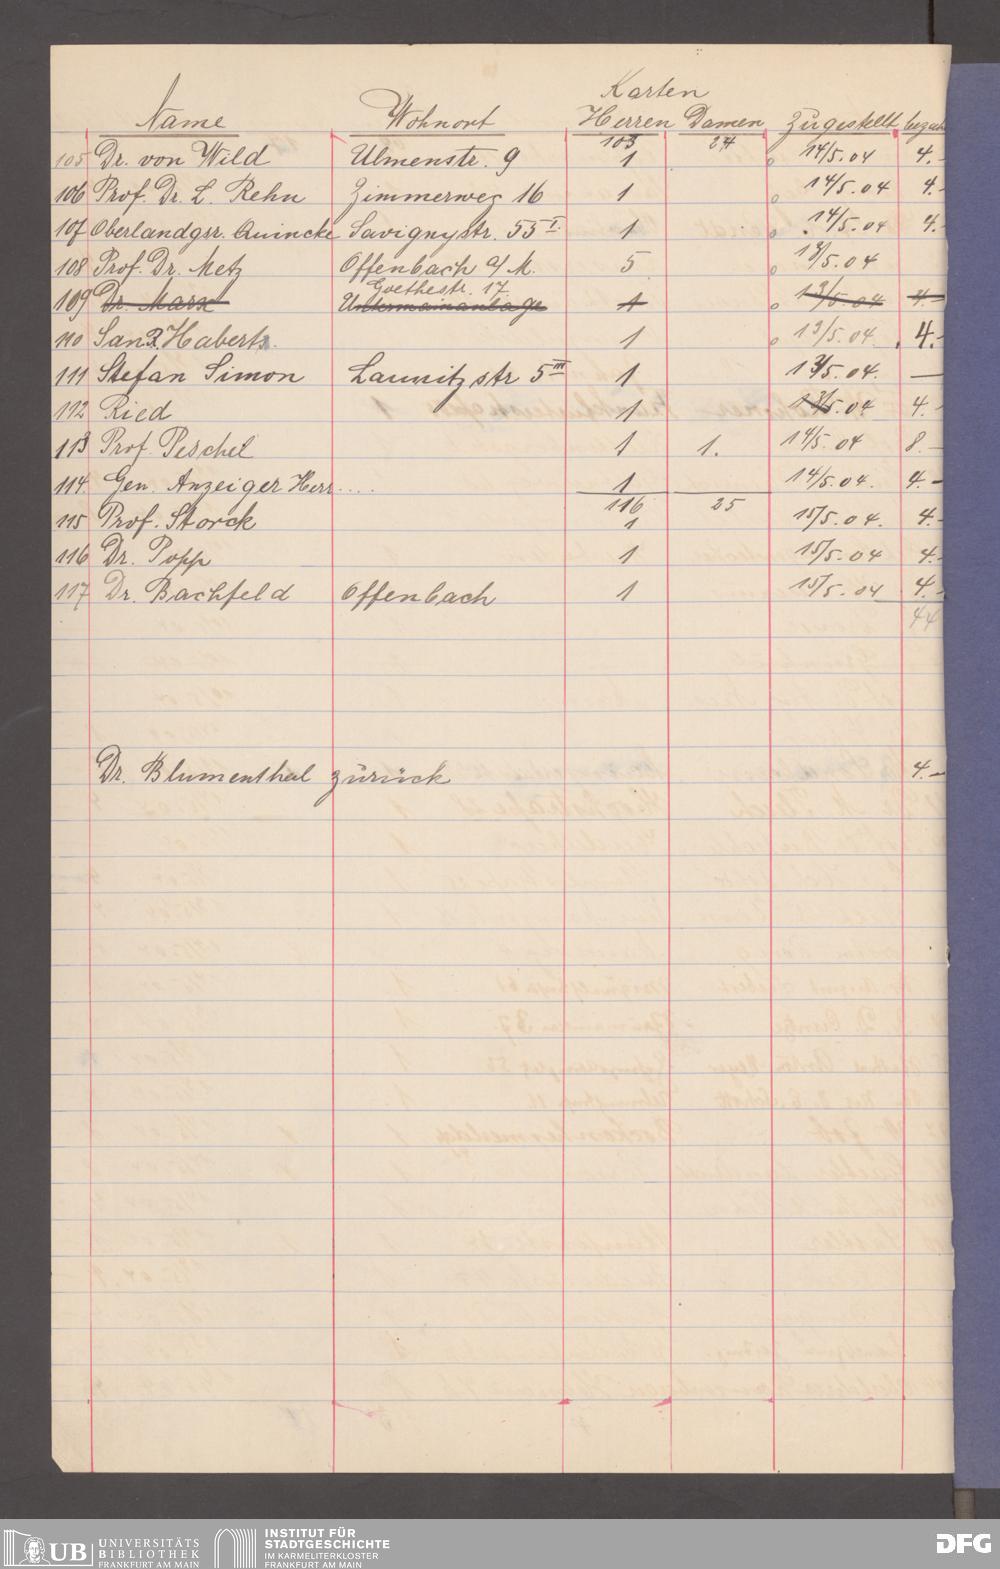 Karten
Name Wohnort Herren Damen Zugestellt bezah
103 24
105 Dr. von Wild Ulmenstr. 9 1 14/5.04 4.-
106 Prof. Dr. L. Rehn Zimmerweg 16 1 14/5.04 4.-
107 Oberlandgr. Quincke Savignystr. 55 I. 1 14/5.04 4.-
108 Prof. Dr. Metz Offenbach a/M. 5 13/5.04
Goethestr. 17
109 Dr. Marx Untermainanlage 1 13/5.04 4.-
110 San R. Haberts. 1 13/5.04. 4.-
111 Stefan Simon Launitzstr 5 III 1 13/5.04. —
112 Ried 1 13/5.04 4.-
113 Prof. Peschel 1 1. 14/5.04 8.-
114. Gen. Anzeiger Herr.... 1 14/5.04. 4.-
116 25
115 Prof. Storck 1 15/5.04. 4.-
116 Dr. Popp 1 15/5.04 4.-
117 Dr. Bachfeld Offenbach 1 15/5.04 4.-
44
Dr. Blumenthal zurück 4.-
UB UNIVERSITÄTS
BIBLIOTHEK
FRANKFURT AM MAIN
INSTITUT FÜR
STADTGESCHICHTE
IM KARMELITERKLOSTER
FRANKFURT AM MAIN
DFG